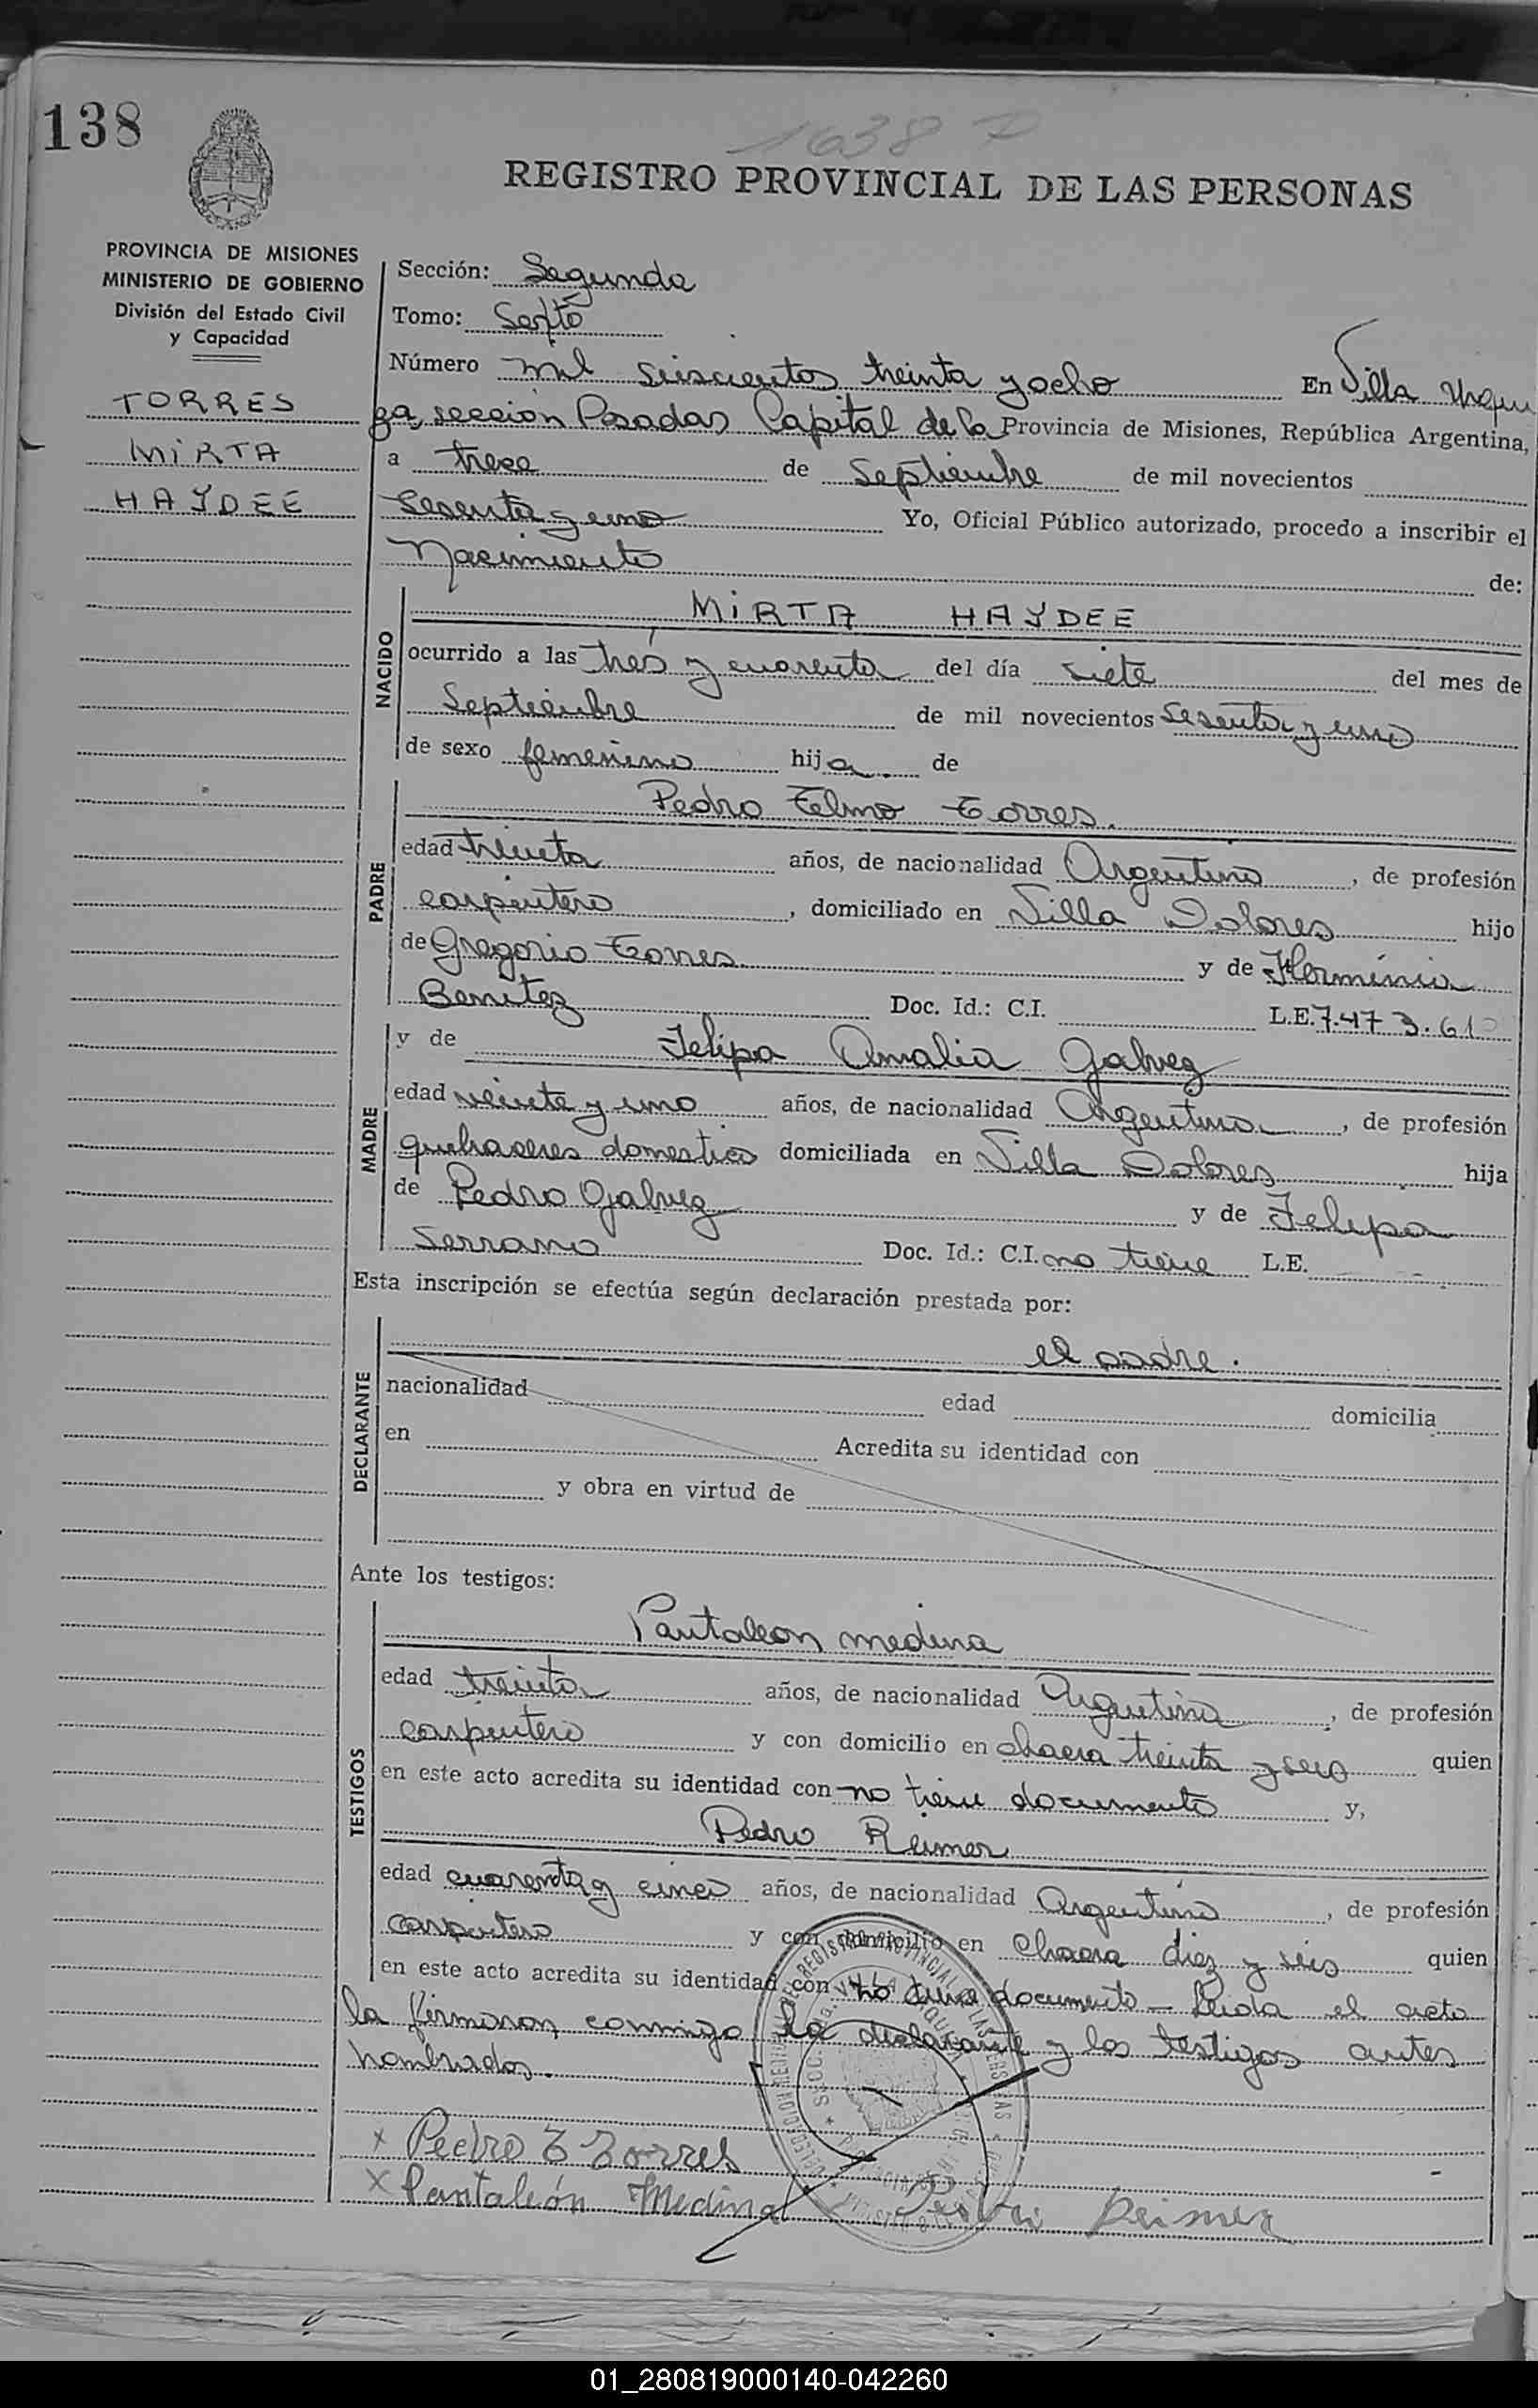 138
1638 P
REGISTRO PROVINCIAL DE LAS PERSONAS
PROVINCIA DE MISIONES
MINISTERIO DE GOBIERNO
División del Estado Civil
y Capacidad
TORRES
MIRTA
HAYDEE
Sección: Segunda
Tomo: Sexto
Número mil seiscientos treinta y ocho En Villa Urqui
za, sección Posadas Capital de la Provincia de Misiones, República Argentina,
a trece de Septiembre de mil novecientos
sesenta y uno Yo, Oficial Público autorizado, procedo a inscribir el
Nacimiento de:
NACIDO
MIRTA HAYDEE
ocurrido a las tres y cuarenta del día siete del mes de
Septiembre de mil novecientos sesenta y uno
de sexo femenino hija de
PADRE
Pedro Telmo Torres.
edad treinta años, de nacionalidad Argentino, de profesión
carpintero, domiciliado en Villa Dolores hijo
de Gregorio Torres y de Herminia
Benitez Doc. Id.: C.I. L.E. 7.473.61
MADRE
y de Felipa Amalia Galvez
edad veinte y uno años, de nacionalidad Argentina, de profesión
quehaseres domestico domiciliada en Villa Dolores hija
de Pedro Galvez y de Felipa
Serrano Doc. Id.: C.I. no tiene L.E.
Esta inscripción se efectúa según declaración prestada por:
DECLARANTE
el padre.
nacionalidad edad domicilia
en Acredita su identidad con
y obra en virtud de
Ante los testigos:
TESTIGOS
Pantaleon medina
edad treinta años, de nacionalidad Argentina, de profesión
carpintero y con domicilio en chacra treinta y seis quien
en este acto acredita su identidad con no tiene documento y,
Pedro Reimer
edad cuarenta y cinco años, de nacionalidad Argentino, de profesión
carpintero y con domicilio en chacra diez y seis quien
en este acto acredita su identidad con no tiene documento - Leida el acta
la firmaron conmigo la declarante y los testigos antes
nombrados.
x Pedro T Torres
x Pantaleón Medina Pedro Reimer
01_280819000140-042260